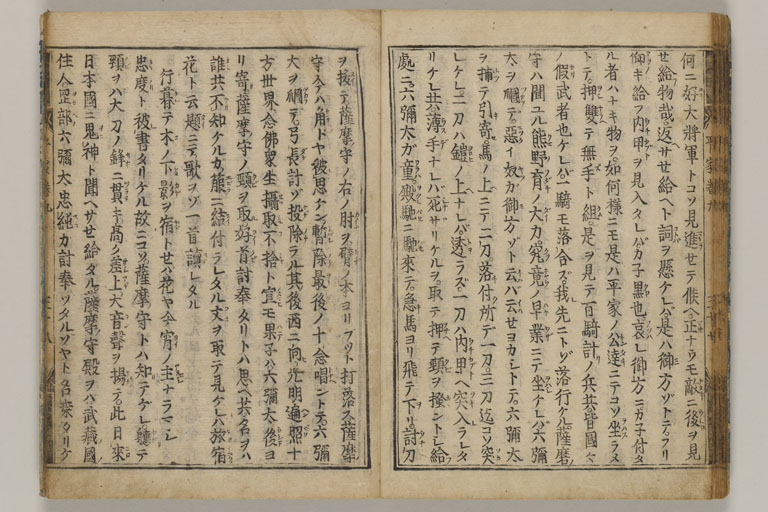 何ニ好大將軍トコソ見進セテ候ヘ正ナウモ敵ニ後ヲ見
セ給物哉返サセ給ヘト詞ヲ懸ケレバ是ハ御方ゾトテフリ
仰キ給フ内甲ヲ見入タレバカ子黒也哀レ御方ニカ子付タ
ル者ハナキ物ヲ如何樣ニモ是ハ平家ノ公達ニテコソ坐ラメ
トテ押雙テ無手ト組是ヲ見テ百騎計リノ兵共皆國々
ノ假武者也ケレバ一騎モ落合ズ我先ニトゾ落行ケル薩摩
守ハ聞ユル熊野育ノ大力究竟ノ早業ニテ坐ケレバ六彌
太ヲ爴テ惡イ奴カ御方ゾト云ハ云セヨカシトテ六彌太
ヲ捕テ引寄馬ノ上ニテ二刀落付所デ一刀三刀迄コソ突
レケレ二刀ハ鎧ノ上ナレバ透ラズ一刀ハ内甲ヘ突入ラレタ
リケレ共薄手ナレバ死サリケルヲ取テ押テ頸ヲ掻ントシ給
處ニ六彌太ガ童殿馳ニ馳來テ急馬ヨリ飛テ下リ討刀
ヲ拔テ薩摩守ノ右ノ肘ヲ臂ノ本ヨリフツト打落ス薩摩
守今ハ角トヤ被思ケン暫除最後ノ十念唱ントテ六彌
太ヲ爴テ弓長計ゾ投除ラル其後西ニ向光明遍照十
方世界念佛衆生攝取不捨ト宣モ果子バ六彌太後ヨ
リ寄薩摩守ノ頸ヲ取好首討奉タリトハ思ヘ共名ヲバ
誰共不知ケルカ箙ニ結付ラレタル文ヲ取テ見ケレバ旅宿
花ト云題ニテ歌ヲゾ一首讀レタル
行暮テ木ノ下影ヲ宿トセバ花ヤ今宵ノ主ナラマシ
忠度ト被書タリケル故ニコソ薩摩守トハ知テケレ軈テ
頸ヲバ大刀ノ鋒ニ貫キ高ク差上大音聲ヲ揚テ此日來
日本國ニ鬼神ト聞ヘサセ給タル薩摩守殿ヲバ武藏國
住人罡部六彌太忠純カ討奉ツタルソヤト名乘タリケ